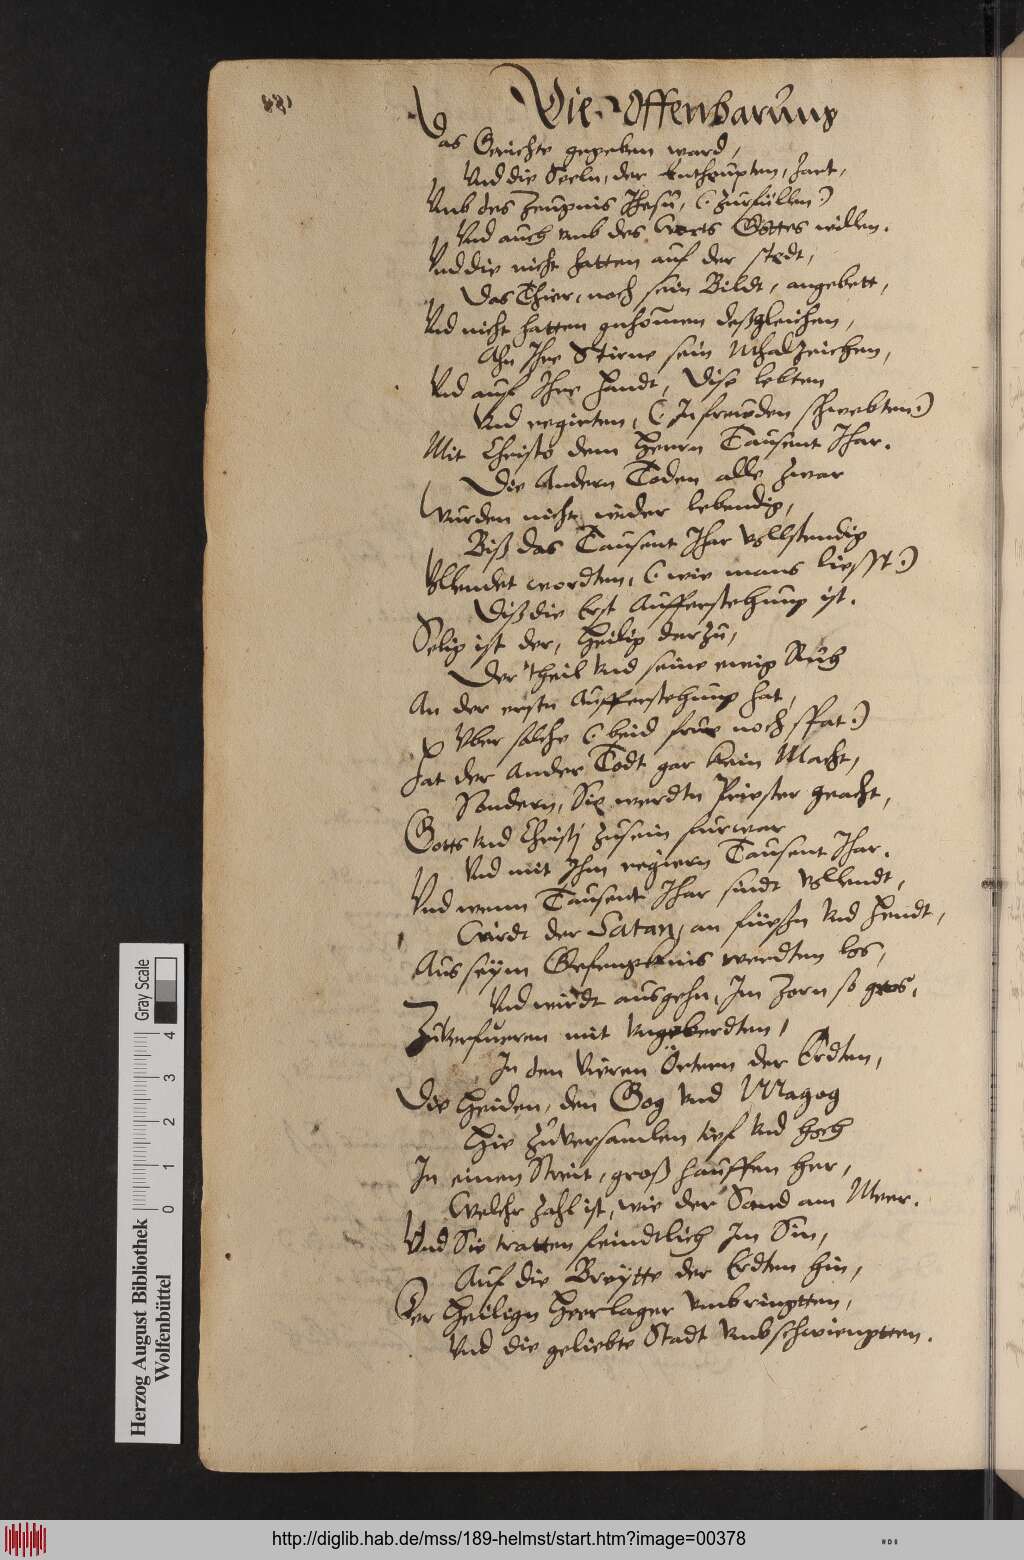 Die Offenbarung
Das Gerichte gegeben ward,
Und die Seeln, der Enthaupten, hart,
Umb des Zeugnis Jhesu, (: Zurfüllen :)
Und auch umb des Worts Gottes willen.
Und die nicht hatten auf der stedt,
Das Thier, noch sein Bildt, angebett,
Und nicht hatten gnhomen deßgleichen,
Ahn Ihre Stirne sein Mhalzeichen,
Und auf Ihre Handt, Dise lebten
Und regirten, (: In freuden schwebten :)
Mit Christo dem Herrn Tausent Jhar.
Die Andern Toden alle zwar
Wurden nicht wider lebendig,
Biß das Tausent Jhar vollstendig
Vollendet wordten, (: wie mans liesst :)
Diß die Erst Aufferstehung ist.
Selig ist der, Heilig derzu,
Der Theil und seine ewig Ruh
An der ersten Aufferstehung hat,
Uber solche (: beid frue noch spat :)
Hat der Ander Todt gar kein Macht,
Sondern, Sie werdtn Priester geacht,
Gotts und Christj zusein furwar
Und mit Ihm regiern Tausent Jhar.
Und wenn Tausent Jhar sindt vollendt,
Wirdt der Satan, an füeßn und Hendt,
Aus seym Gefengknis werdten los,
Und wirdt ausgehn, Im Zorn so gros,
Zuverfueren mit ungeberdten,
In den vieren Örtern der Erdten,
Die Heiden, den Gog und Magog
Hie zuversamlen tief und hoch
In einen Streit, groß hauffen her,
Welchr zahl ist, wie der Sand am Meer.
Und Sie tratten feindtlich Im Sin,
Auf die Breytte der Erdten hin,
Der Heilign Heerlager umbringtten,
Und die geliebte Stadt
Herzog August Bibliothek
Wolfenbüttel
0 1 2 3 4
Gray Scale
http://diglib.hab.de/mss/189-helmst/start.htm?image=00378